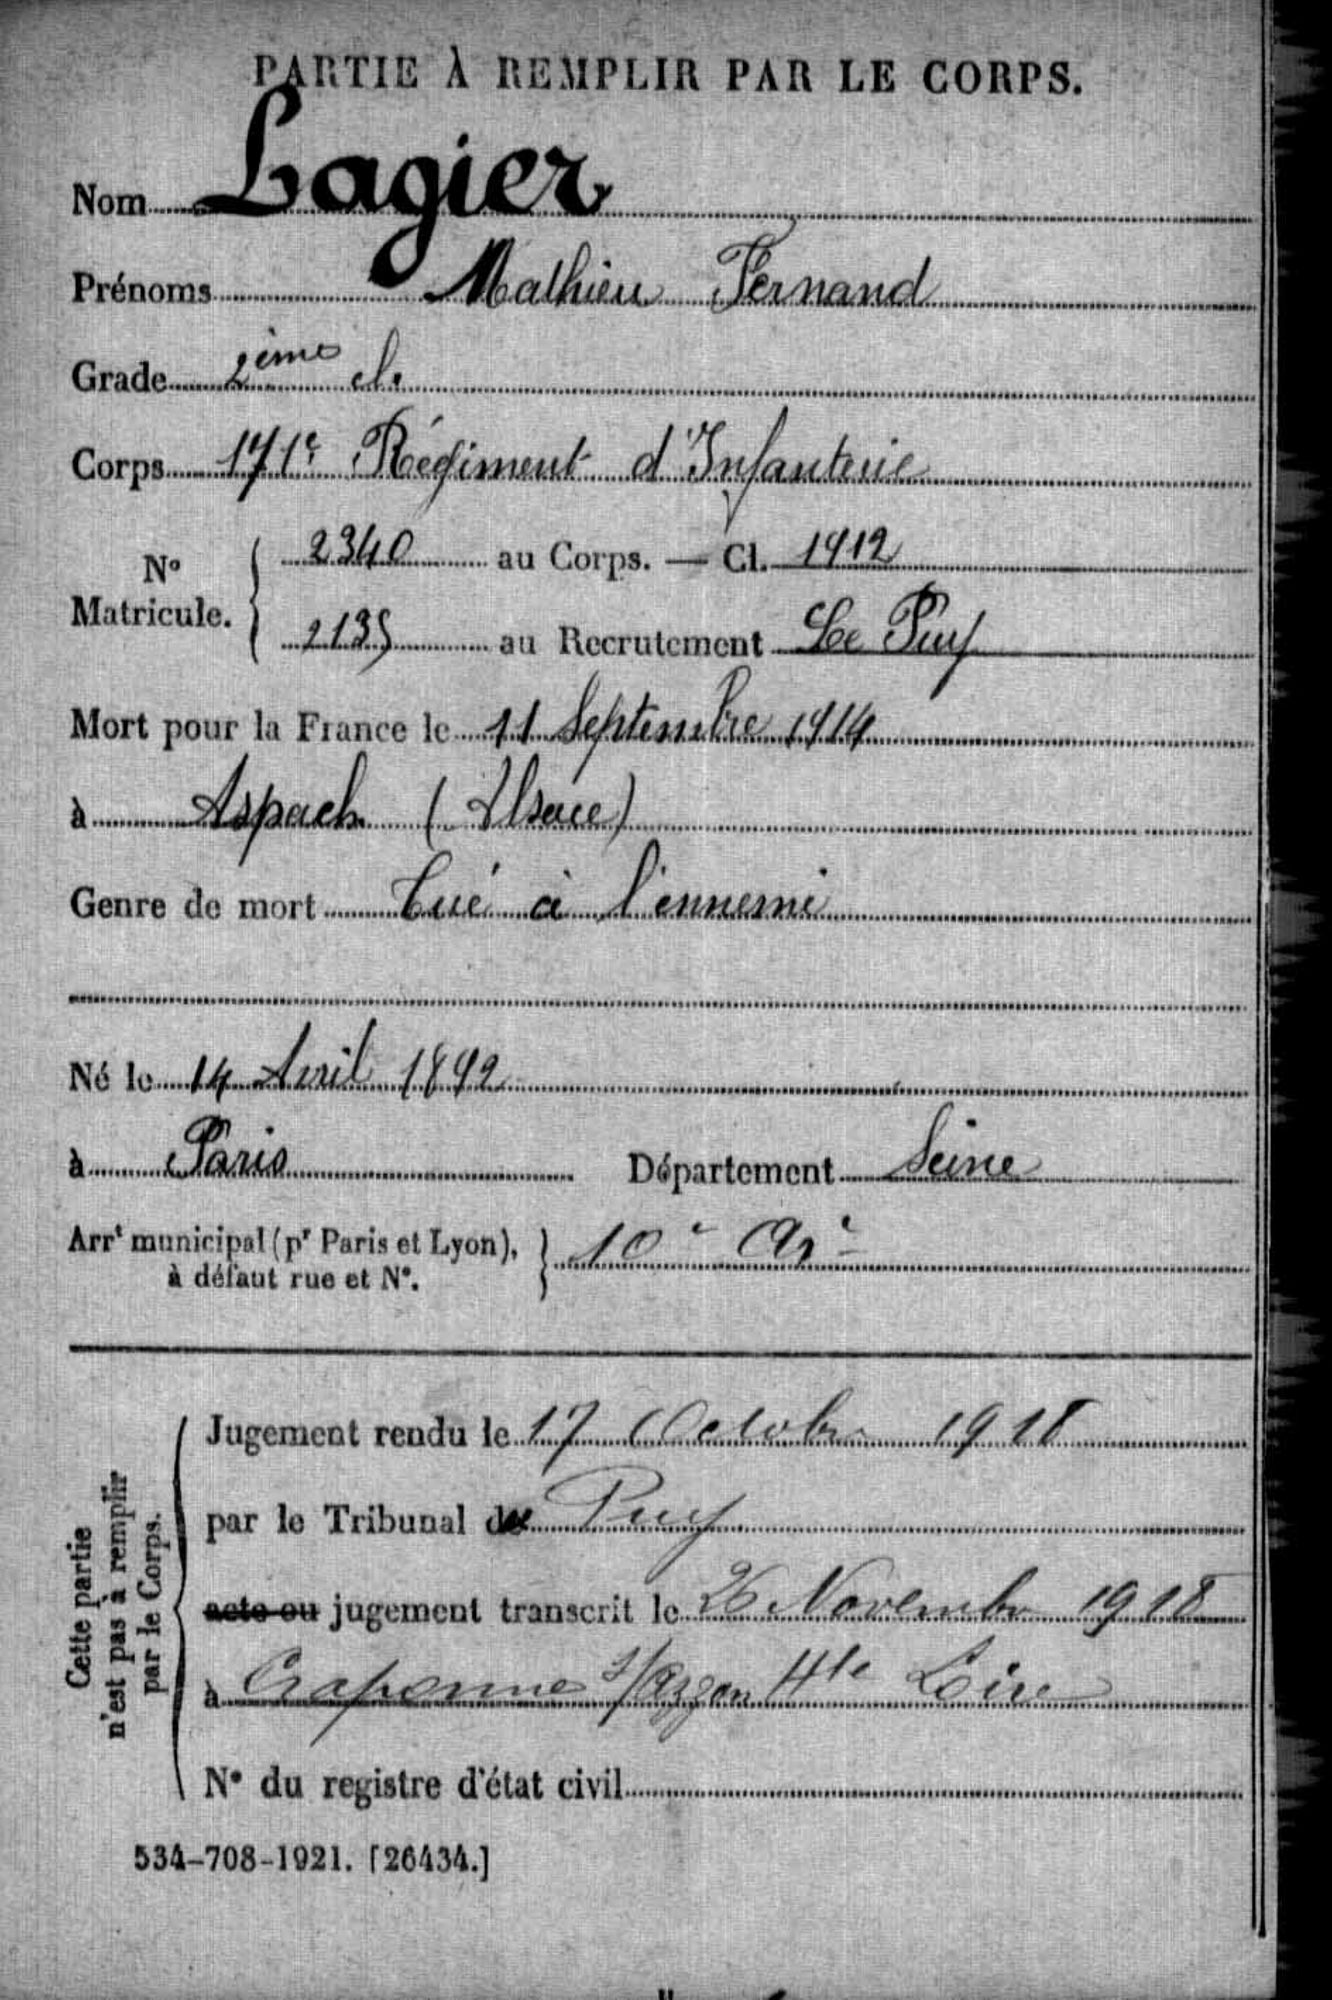 PARTIE À REMPLIR PAR LE CORPS.
Nom Lagier
Prénoms Mathieu Fernand
Grade 2ème cl.
Corps 171e Régiment d'Infanterie
No Matricule. { 2340 au Corps. — Cl. 1912
2135 au Recrutement Le Puy
Mort pour la France le 11 Septembre 1914
à Aspach (Alsace)
Genre de mort Tué à l'ennemi
Né le 14 Avril 1892
à Paris Département Seine
Arrt municipal (pr Paris et Lyon), } 10e Art
à défaut rue et No.
Cette partie n'est pas à remplir par le Corps.
Jugement rendu le 17 Octobre 1918
par le Tribunal du Puy
acte ou jugement transcrit le 26 Novembre 1918
à Craponne s/Arzon Hte Loire
No du registre d'état civil
534-708-1921. [26434.]